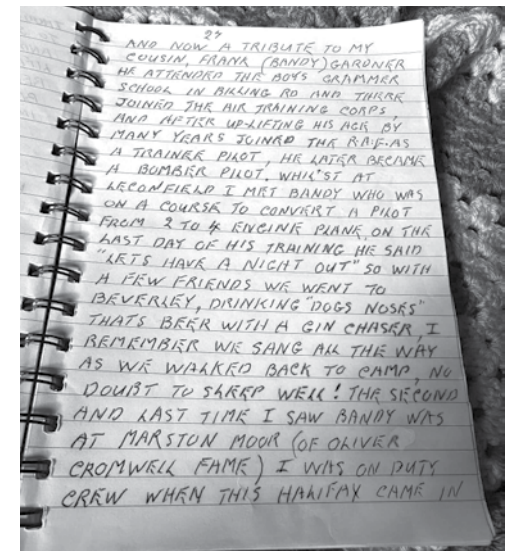 24
AND NOW A TRIBUTE TO MY
COUSIN, FRANK (BANDY) GARDNER
HE ATTENDED THE BOYS GRAMMER
SCHOOL IN BILLING RD AND THERE
JOINED THE AIR TRAINING CORPS,
AND AFTER UP-LIFTING HIS AGE BY
MANY YEARS JOINED THE R.A.F. AS
A TRAINEE PILOT, HE LATER BECAME
A BOMBER PILOT. WHIL'ST AT
LECONFIELD I MET BANDY WHO WAS
ON A COURSE TO CONVERT A PILOT
FROM 2 TO 4 ENGINE PLANE, ON THE
LAST DAY OF HIS TRAINING HE SAID
"LETS HAVE A NIGHT OUT" SO WITH
A FEW FRIENDS WE WENT TO
BEVERLEY, DRINKING "DOGS NOSES"
THATS BEER WITH A GIN CHASER, I
REMEMBER WE SANG ALL THE WAY
AS WE WALKED BACK TO CAMP, NO
DOUBT TO SLEEP WELL! THE SECOND
AND LAST TIME I SAW BANDY WAS
AT MARSTON MOOR (OF OLIVER
CROMWELL FAME) I WAS ON DUTY
CREW WHEN THIS HALIFAX CAME IN